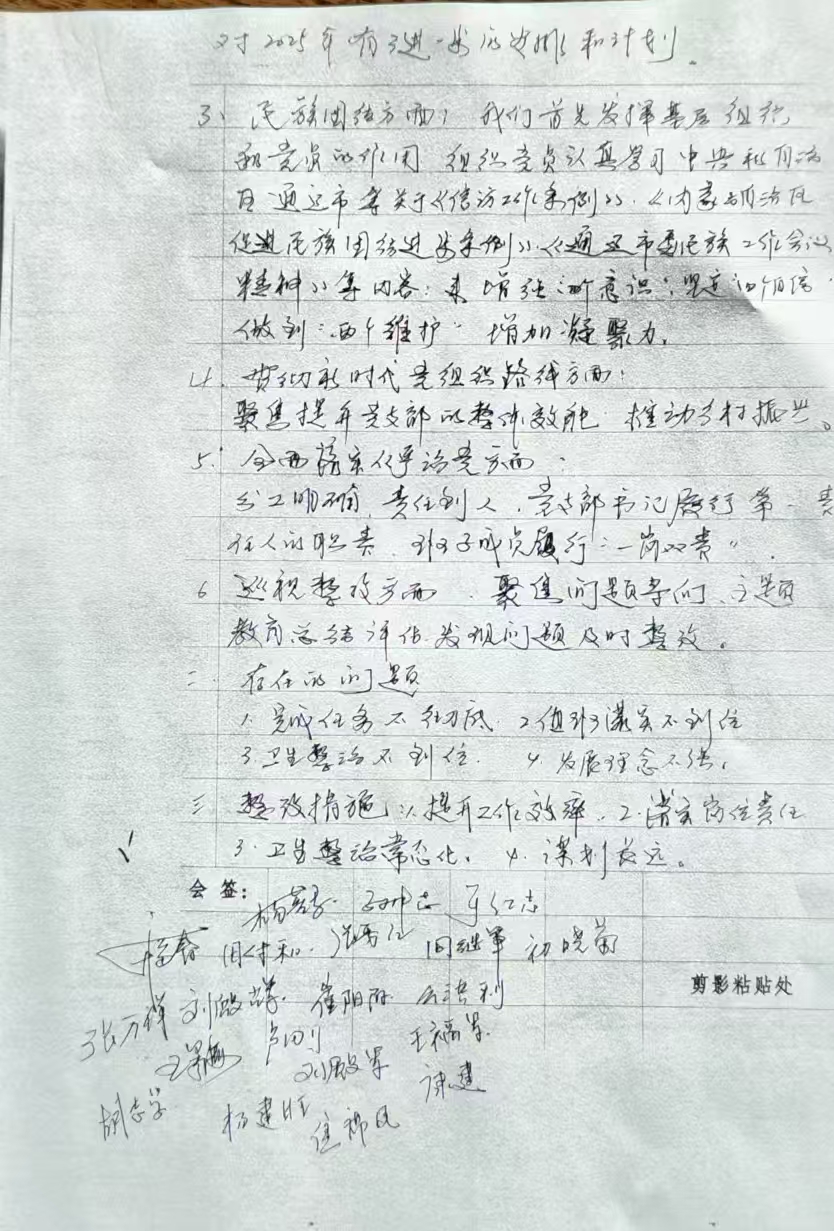 对2025年有了进一步的安排和计划。
3、民族团结方面：我们首先发挥基层组织
和党员的作用 组织党员认真学习中央和自治
区 通辽市委关于《信访工作条例》、《内蒙古自治区
促进民族团结进步条例》、《通辽市委民族工作会议
精神》等内容：来增强四个意识：坚定四个自信
做到"两个维护" 增加凝聚力。
4、贯彻新时代党组织路线方面：
聚焦提升党支部的整体效能 推动乡村振兴。
5、全面落实从严治党方面：
分工明确，责任到人，党支部书记履行第一责
任人的职责，班子成员履行"一岗双责"。
6 巡视整改方面，聚焦问题导向、主题
教育总结评估 发现问题及时整改。
二、存在的问题
1、完成任务不彻底 2、值班落实不到位
3、卫生整治不到位、 4、发展理念不强。
三 整改措施：1、提升工作效率、2、落实岗位责任
3、卫生整治常态化。 4、谋划长远。
会签：
田继军 初晓菊
剪影粘贴处
张万祥 刘殿
王福军
刘殿军
胡志学 杨建旺